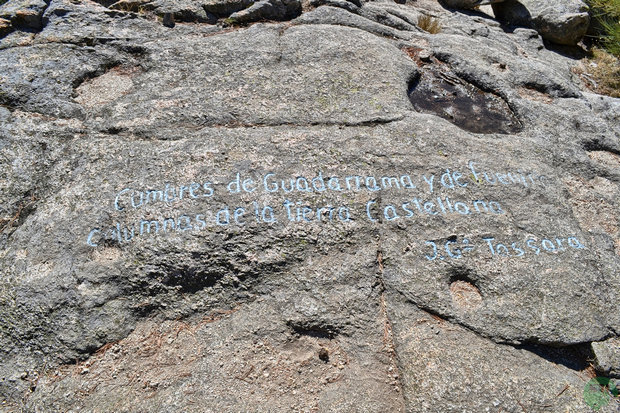 Cumbres de Guadarrama y de Fuenfría
columnas de la tierra Castellana
J. Gª Tassara